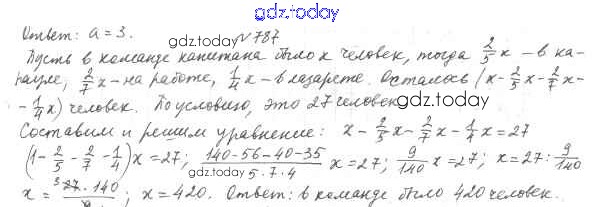 gdz.today
Ответ: a = 3.
gdz.today № 787
Пусть в команде капитана было x человек, тогда 2/5 x – в ка-
рауле, 2/7 x – на работе, 1/4 x – в лазарете. Осталось (x - 2/5 x - 2/7 x -
- 1/4 x) человек. По условию, это 27 человек.
gdz.today
Составим и решим уравнение: x - 2/5 x - 2/7 x - 1/4 x = 27
(1 - 2/5 - 2/7 - 1/4) x = 27; (140-56-40-35)/(5·7·4) x = 27; 9/140 x = 27; x = 27 : 9/140
gdz.today
x = 27·140/9; x = 420. Ответ: в команде было 420 человек.
gdz.today